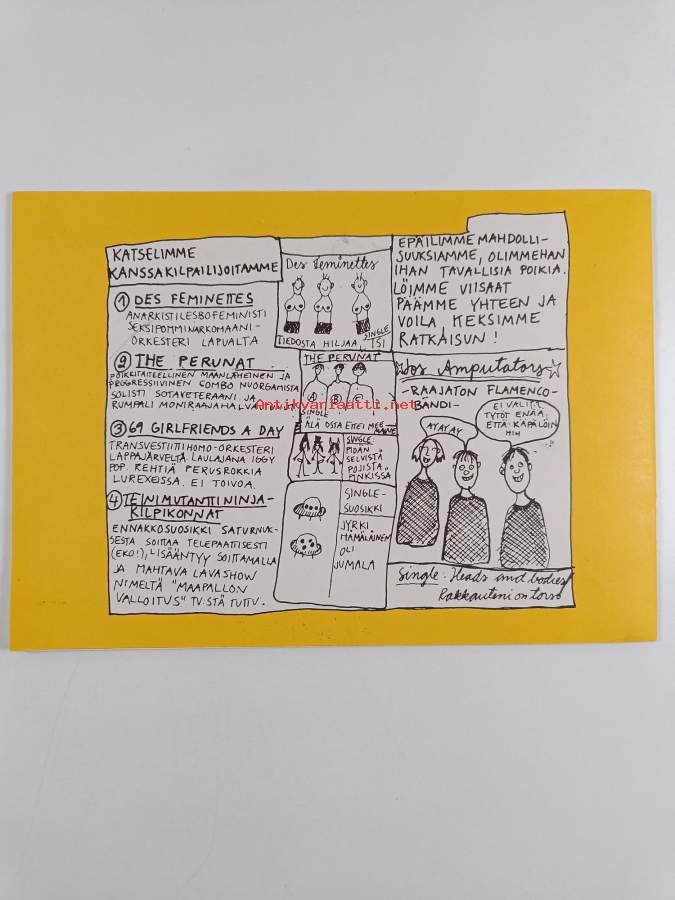 KATSELIMME
KANSSAKILPAILIJOITAMME
① DES FEMINETTES
ANARKISTILESBOFEMINISTI
SEKSIPOMMINARKOMAANI-
ORKESTERI LAPUALTA
② THE PERUNAT
POIKKITAITEELLINEN MAANLÄHEINEN JA
PROGRESSIIVINEN COMBO NUORGAMISTA
SOLISTI SOTAVETERAANI JA
RUMPALI MONIRAAJAHALVAANTUNUT
③ 69 GIRLFRIENDS A DAY
TRANSVESTIITTIHOMO-ORKESTERI
LAPPAJÄRVELTÄ LAULAJANA IGGY
POP. REHTIÄ PERUSROKKIA
LUREXEISSA. EI TOIVOA.
④ TEINIMUTANTTININJA-
KILPIKONNAT
ENNAKKOSUOSIKKI SATURNUK-
SESTA SOITTAA TELEPAATTISESTI
(EKO!), LISÄÄNTYY SOITTAMALLA
JA MAHTAVA LAVASHOW
NIMELTÄ "MAAPALLON
VALLOITUS" TV:STÄ TUTTU.
Des Feminettes
SINGLE
TIEDOSTA HILJAA, ISI
THE PERUNAT
A B C
SINGLE
ÄLÄ OSTA ETTEI MEE
SINGLE:
PIDÄN
SELVISTÄ
POJISTA
PINKISSÄ
SINGLE-
SUOSIKKI
JYRKI
HÄMÄLÄINEN
OLI
JUMALA
EPÄILIMME MAHDOLLI-
SUUKSIAMME, OLIMMEHAN
IHAN TAVALLISIA POIKIA.
LÖIMME VIISAAT
PÄÄMME YHTEEN JA
VOILA, KEKSIMME
RATKAISUN!
Los Amputators
-RAAJATON FLAMENCO-
BÄNDI-
AYAYAY
EI VALITA
TYTÖT ENÄÄ,
ETTÄ KÄPÄLÖIN
HIH
Single: Heads and bodies/
Rakkauteni on torso
Antikvariaatti.net